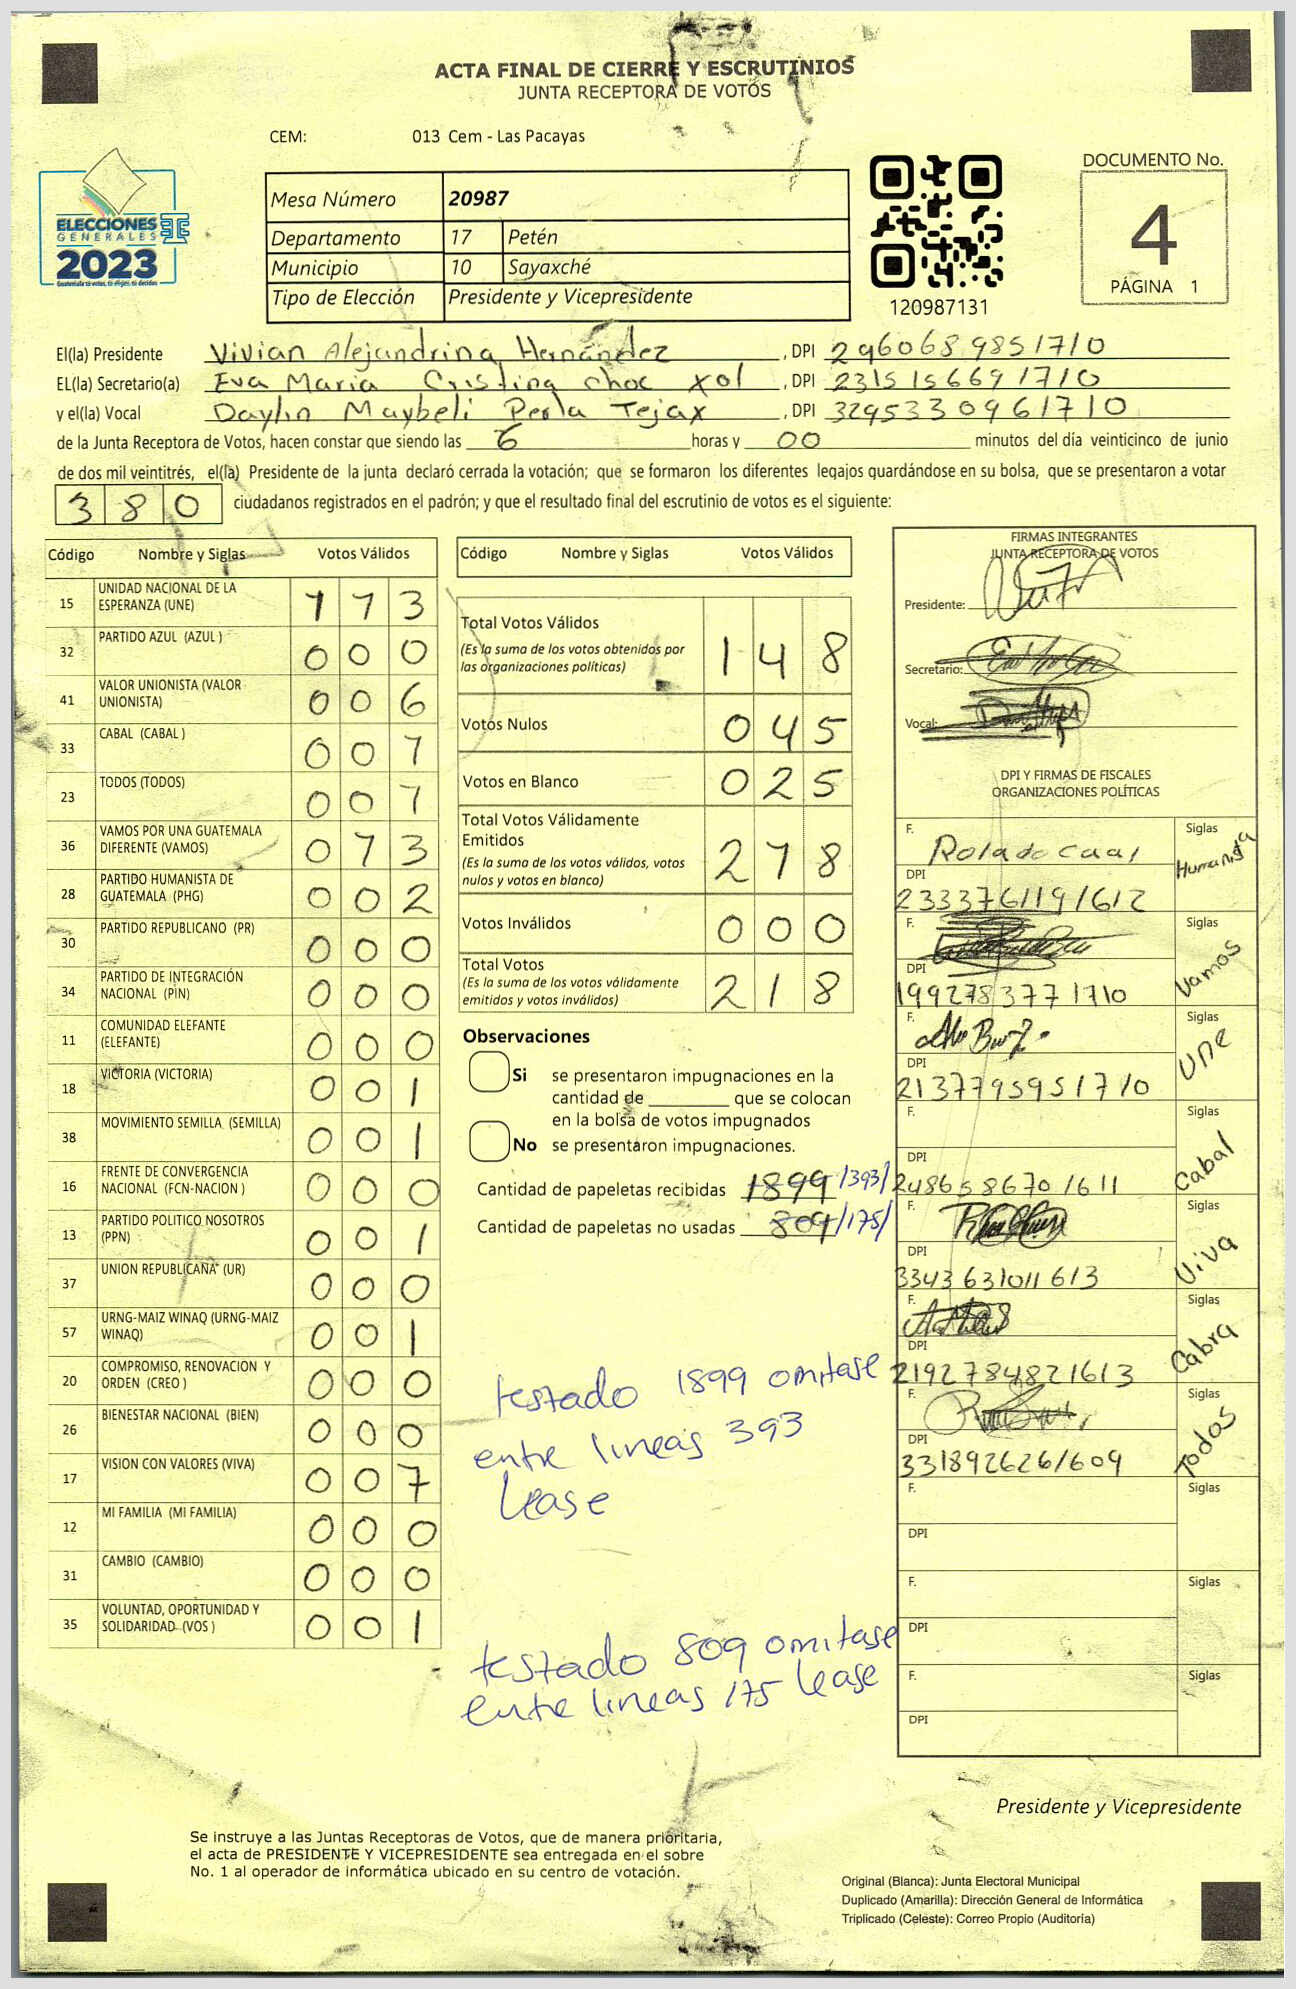 ACTA FINAL DE CIERRE Y ESCRUTINIOS
JUNTA RECEPTORA DE VOTOS
CEM: 013 Cem - Las Pacayas
ELECCIONES
GENERALES
2023
Mesa Número 20987
Departamento 17 Petén
Municipio 10 Sayaxché
Tipo de Elección Presidente y Vicepresidente
120987131
DOCUMENTO No.
4
PÁGINA 1
El(la) Presidente Vivian Alejandrina Hernández, DPI 2960689851710
EL(la) Secretario(a) Eva Maria Cristina choc xol, DPI 2315156691710
y el(la) Vocal Daylin Maybeli Perla Tejax, DPI 3295330961710
de la Junta Receptora de Votos, hacen constar que siendo las 6 horas y 00 minutos del día veinticinco de junio
de dos mil veintitrés, el(la) Presidente de la junta declaró cerrada la votación; que se formaron los diferentes legajos guardándose en su bolsa, que se presentaron a votar
380 ciudadanos registrados en el padrón; y que el resultado final del escrutinio de votos es el siguiente:
Código Nombre y Siglas Votos Válidos
15 UNIDAD NACIONAL DE LA ESPERANZA (UNE) 1 7 3
32 PARTIDO AZUL (AZUL ) 0 0 0
41 VALOR UNIONISTA (VALOR UNIONISTA) 0 0 6
33 CABAL (CABAL ) 0 0 7
23 TODOS (TODOS) 0 0 7
36 VAMOS POR UNA GUATEMALA DIFERENTE (VAMOS) 0 7 3
28 PARTIDO HUMANISTA DE GUATEMALA (PHG) 0 0 2
30 PARTIDO REPUBLICANO (PR) 0 0 0
34 PARTIDO DE INTEGRACIÓN NACIONAL (PIN) 0 0 0
11 COMUNIDAD ELEFANTE (ELEFANTE) 0 0 0
18 VICTORIA (VICTORIA) 0 0 1
38 MOVIMIENTO SEMILLA (SEMILLA) 0 0 1
16 FRENTE DE CONVERGENCIA NACIONAL (FCN-NACION ) 0 0 0
13 PARTIDO POLITICO NOSOTROS (PPN) 0 0 1
37 UNION REPUBLICANA (UR) 0 0 0
57 URNG-MAIZ WINAQ (URNG-MAIZ WINAQ) 0 0 1
20 COMPROMISO, RENOVACION Y ORDEN (CREO ) 0 0 0
26 BIENESTAR NACIONAL (BIEN) 0 0 0
17 VISION CON VALORES (VIVA) 0 0 7
12 MI FAMILIA (MI FAMILIA) 0 0 0
31 CAMBIO (CAMBIO) 0 0 0
35 VOLUNTAD, OPORTUNIDAD Y SOLIDARIDAD (VOS ) 0 0 1
Código Nombre y Siglas Votos Válidos
Total Votos Válidos 1 4 8
(Es la suma de los votos obtenidos por
las organizaciones políticas)
Votos Nulos 0 4 5
Votos en Blanco 0 2 5
Total Votos Válidamente
Emitidos 2 1 8
(Es la suma de los votos válidos, votos
nulos y votos en blanco)
Votos Inválidos 0 0 0
Total Votos 2 1 8
(Es la suma de los votos válidamente
emitidos y votos inválidos)
Observaciones
Si se presentaron impugnaciones en la
cantidad de ________ que se colocan
en la bolsa de votos impugnados
No se presentaron impugnaciones.
Cantidad de papeletas recibidas 1899 /393/
Cantidad de papeletas no usadas 809 /175/
testado 1899 omitase
entre lineas 393
lease
testado 809 omitase
entre lineas 175 lease
FIRMAS INTEGRANTES
JUNTA RECEPTORA DE VOTOS
Presidente:
Secretario:
Vocal:
DPI Y FIRMAS DE FISCALES
ORGANIZACIONES POLÍTICAS
F. Rolado caal Siglas Humanista
DPI 2333761191612
F. Siglas Vamos
DPI 1992783771710
F. Siglas une
DPI 2137795951710
F. Siglas Cabal
DPI 2486586701611
F. Siglas Viva
DPI 3343631011613
F. Siglas Cabra
DPI 2192784821613
F. Siglas Todos
DPI 3318926261609
F. Siglas
DPI
F. Siglas
DPI
F. Siglas
DPI
Presidente y Vicepresidente
Se instruye a las Juntas Receptoras de Votos, que de manera prioritaria,
el acta de PRESIDENTE Y VICEPRESIDENTE sea entregada en el sobre
No. 1 al operador de informática ubicado en su centro de votación.
Original (Blanca): Junta Electoral Municipal
Duplicado (Amarilla): Dirección General de Informática
Triplicado (Celeste): Correo Propio (Auditoría)